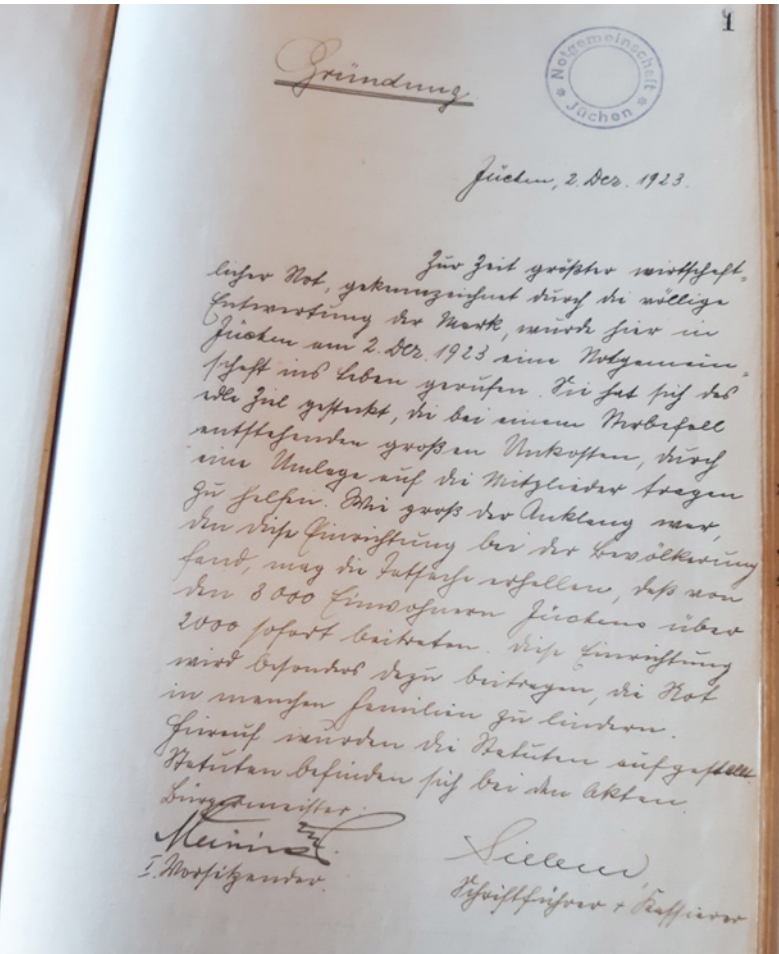 1
Notgemeinschaft
* Jüchen *
Gründung
Jüchen, 2. Dez. 1923.
Zur Zeit größter wirtschaft-
licher Not, gekennzeichnet durch die völlige
Entwertung der Mark, wurde hier in
Jüchen am 2. Dez. 1923 eine Notgemein-
schaft ins Leben gerufen. Sie hat sich das
edle Ziel gesteckt, die bei einem Sterbefall
entstehenden großen Unkosten, durch
eine Umlage auf die Mitglieder tragen
zu helfen. Wie groß der Anklang war,
den diese Einrichtung bei der Bevölkerung
fand, mag die Tatsache erhellen, daß von
den 3000 Einwohnern Jüchens über
2000 sofort beitraten. Diese Einrichtung
wird besonders dazu beitragen, die Not
in manchen Familien zu lindern.
Hierauf wurden die Statuten aufgestellt.
Statuten befinden sich bei den Akten.
Bürgermeister.
I. Vorsitzender.
Schriftführer + Kassierer